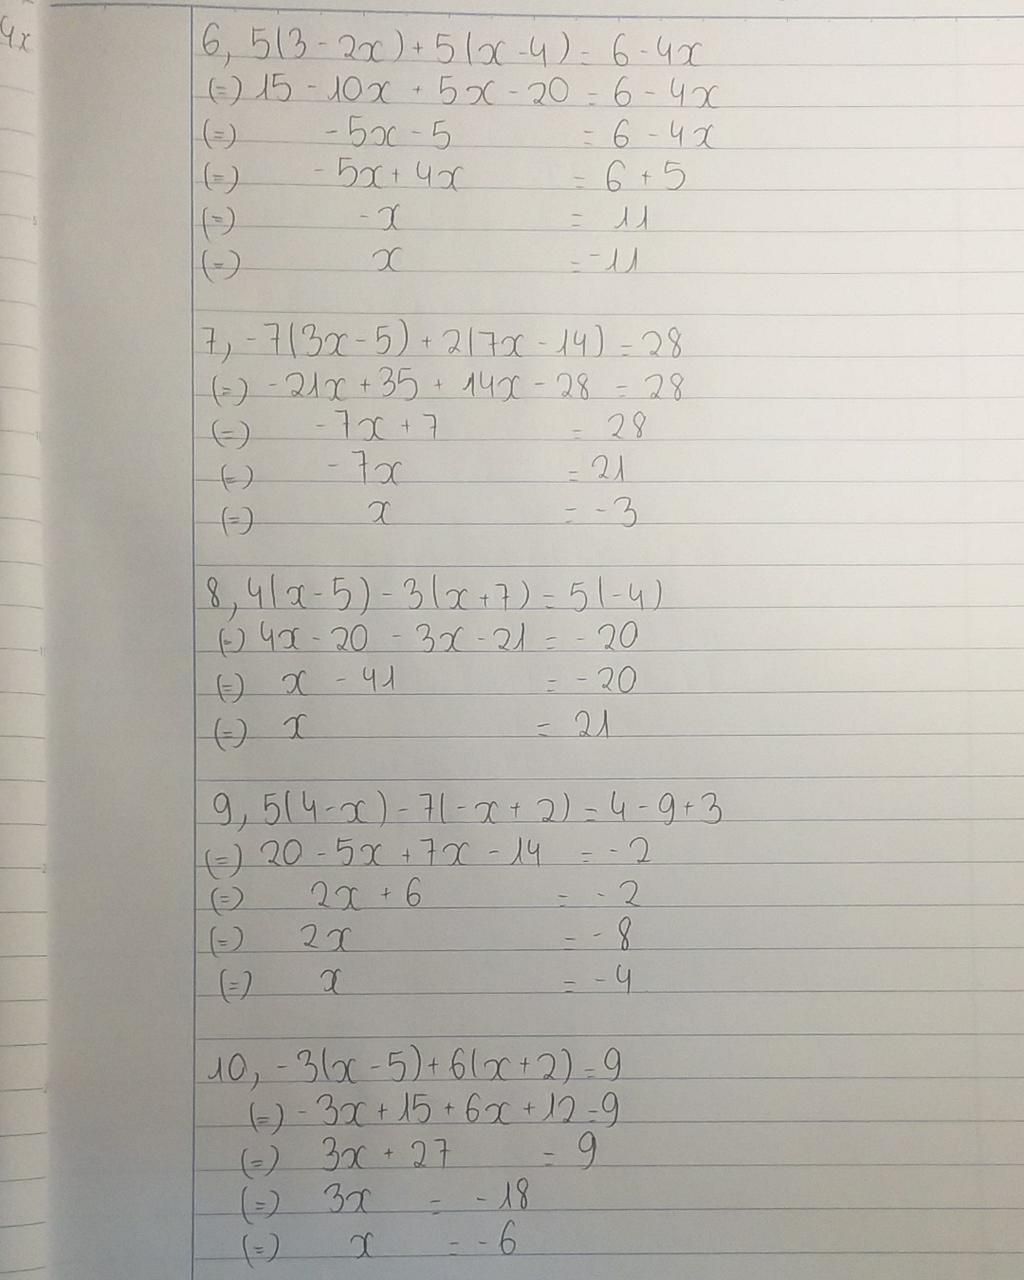 4x
6, 5(3 - 2x) + 5(x - 4) = 6 - 4x
(=) 15 - 10x + 5x - 20 = 6 - 4x
(=) -5x - 5 = 6 - 4x
(=) -5x + 4x = 6 + 5
(=) -x = 11
(=) x = -11
7, -7(3x - 5) + 2(7x - 14) = 28
(=) -21x + 35 + 14x - 28 = 28
(=) -7x + 7 = 28
(=) -7x = 21
(=) x = -3
8, 4(x - 5) - 3(x + 7) = 5(-4)
(=) 4x - 20 - 3x - 21 = -20
(=) x - 41 = -20
(=) x = 21
9, 5(4 - x) - 7(-x + 2) = 4 - 9 + 3
(=) 20 - 5x + 7x - 14 = -2
(=) 2x + 6 = -2
(=) 2x = -8
(=) x = -4
10, -3(x - 5) + 6(x + 2) = 9
(=) -3x + 15 + 6x + 12 = 9
(=) 3x + 27 = 9
(=) 3x = -18
(=) x = -6